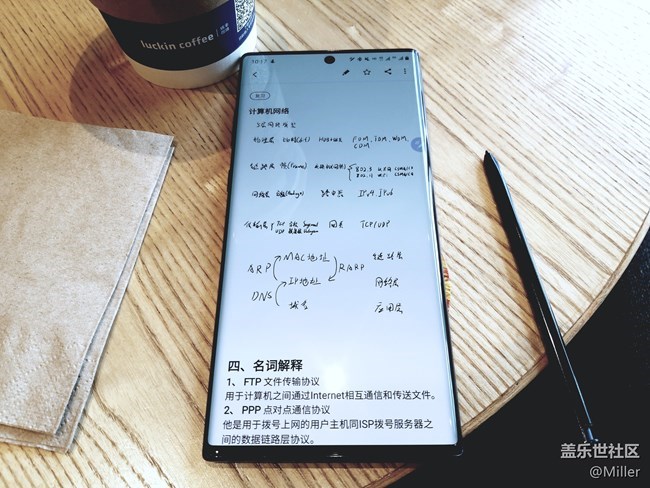 luckin coffee
10:17
计算机网络
物理层 比特(bit) FDM, TDM, WDM,
CDM
链路层 帧(Frame)
网络层 路由器 IPv4, IPv6
传输层 TCP UDP 网关 TCP/UDP
MAC地址 链路层
ARP RARP
IP地址 网络层
DNS
域名 应用层
四、名词解释
1、 FTP 文件传输协议
用于计算机之间通过Internet相互通信和传送文件。
2、 PPP 点对点通信协议
他是用于拨号上网的用户主机同ISP拨号服务器之
间的数据链路层协议。
盖乐世社区
@Miller